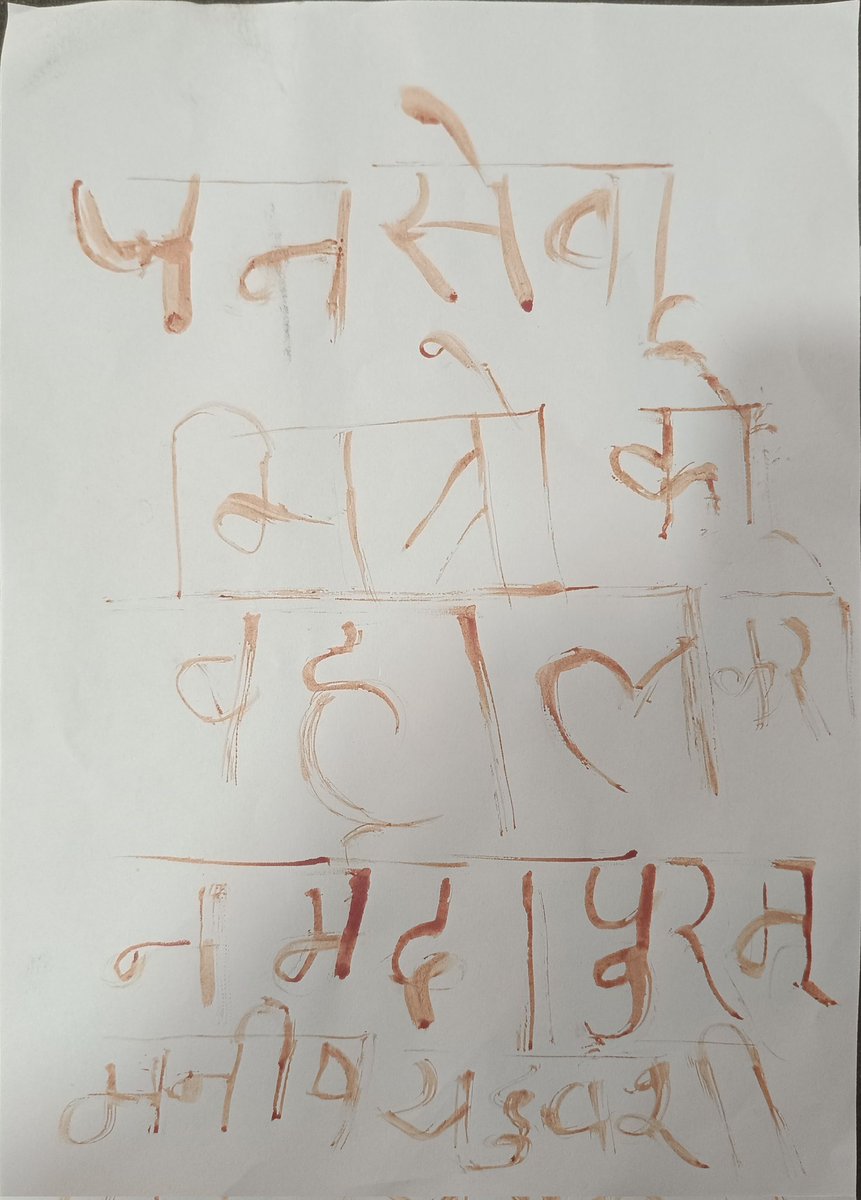 पन सेवा
मित्रो को
वहाल करो
नमदापुरम्
मनीष यदुवशी